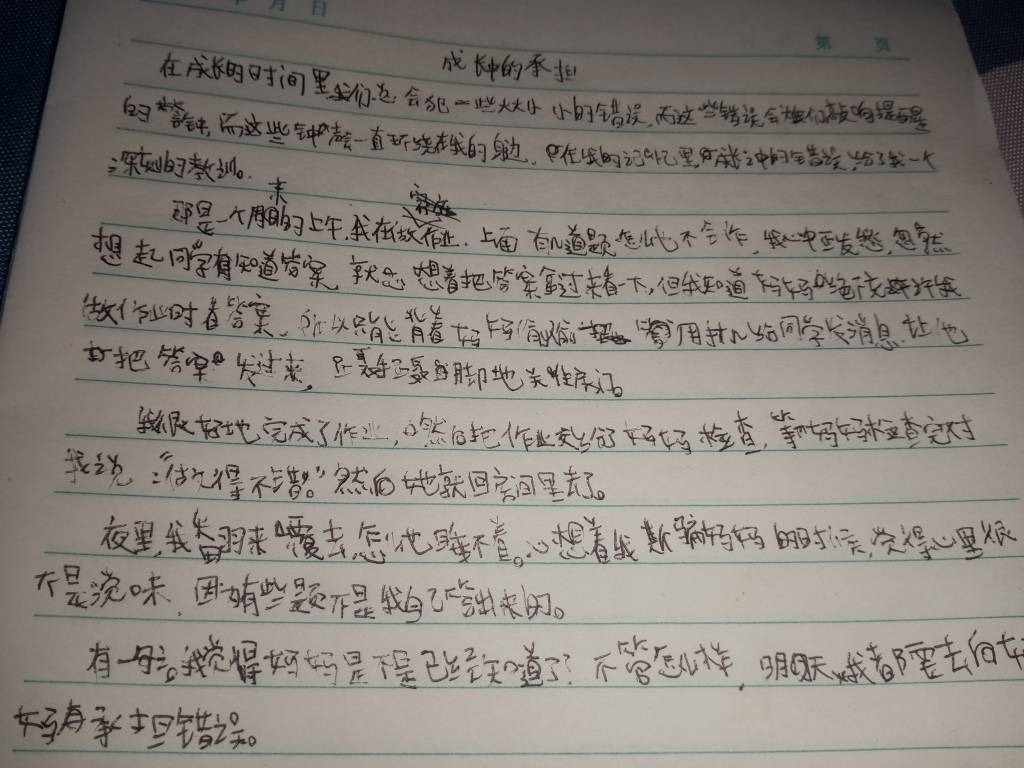 年 月 日
第 页
成长中的承担
在成长的时间里我们总会犯一些大大小小的错误,而这些错误会为我们敲响提醒
的警钟,而这些钟声一直环绕在我的身边,在我的记忆里,成长中的错误,给了我一个
深刻的教训。
那是一个月末的上午,我在做作业,上面有几道题怎么也不会作,我心中正发愁,忽然
想起同学有知道答案,就想着把答案拿过来看一下,但我知道妈妈绝不许我
做作业时看答案,所以只能背着妈妈偷偷用手机给同学发消息,让他
把答案发过来,
我很好地完成了作业,然后把作业交给了妈妈检查,等妈妈检查完对
我说:“做得不错。”然后她就回房间里去了。
夜里,我翻来覆去怎么也睡不着。心想着我欺骗妈妈的时候,觉得心里很
不是滋味,因为有些题不是我自己答出来的。
我觉得妈妈是不是已经知道了?不管怎么样,明天我都要去向妈
妈承担错误。